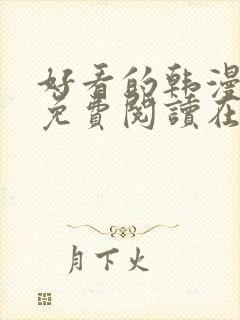 好看的韩漫
免費閱讀在
月下火